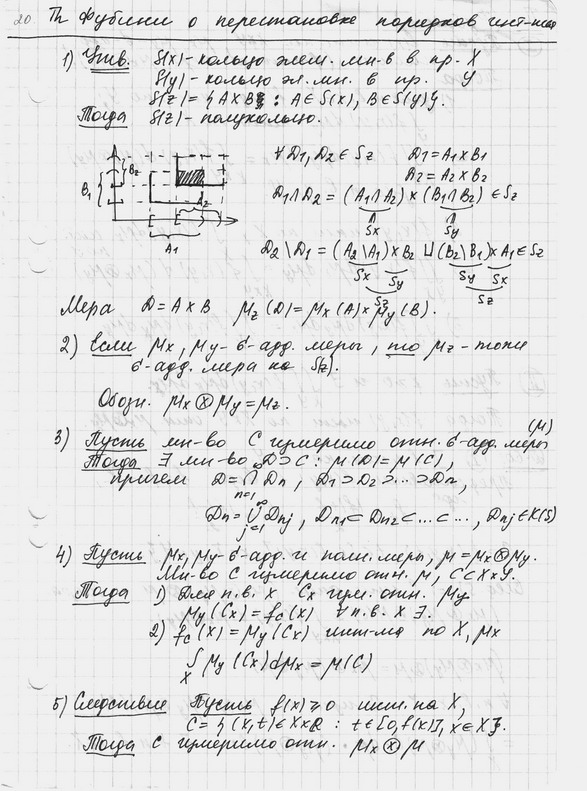 20 Th Фубини о перестановке порядков инт-ния
1) Утв. S(x) - кольцо элем. мн-в в пр. X
S(y) - кольцо эл. мн. в пр. Y
S(z) = {A×B : A∈S(x), B∈S(y)}.
Тогда S(z) - полукольцо.
∀D1, D2 ∈ Sz D1 = A1×B1
A2 = A2×B2
D1∩D2 = (A1∩A2)×(B1∩B2) ∈ Sz
Sx Sy
B1 B2 A2 A1
D2\D1 = (A2\A1)×B2 ⊔ (B2\B1)×A1 ∈ Sz
Sx Sy Sy Sx
Sz Sz
Мера D = A×B μz(D) = μx(A)×μy(B).
2) Если μx, μy - σ-адд. меры, то μz - тоже
σ-адд. мера на S(z).
Обозн. μx⊗μy = μz.
3) Пусть мн-во C измеримо отн. σ-адд. меры (μ)
Тогда ∃ мн-во D⊃C : μ(D) = μ(C),
причем D = ∩_{n=1}^∞ Dn, D1⊃D2⊃...⊃Dn,
Dn = ∪_{j=1}^∞ Dnj, Dn1⊂Dn2⊂...⊂..., Dnj∈K(S)
4) Пусть μx, μy - σ-адд. и полн. меры, μ = μx⊗μy.
Мн-во C измеримо отн. μ, C⊂X×Y.
Тогда 1) Для п.в. x Cx изм. отн. μy
μy(Cx) = fc(x) ∀ п.в. x ∃.
2) fc(x) = μy(Cx) инт-ма по X, μx
∫_X μy(Cx)dμx = μ(C)
5) Следствие Пусть f(x)≥0 инт. на X,
C = {(x,t)∈X×R : t∈[0,f(x)], x∈X}.
Тогда C измеримо отн. μx⊗μ